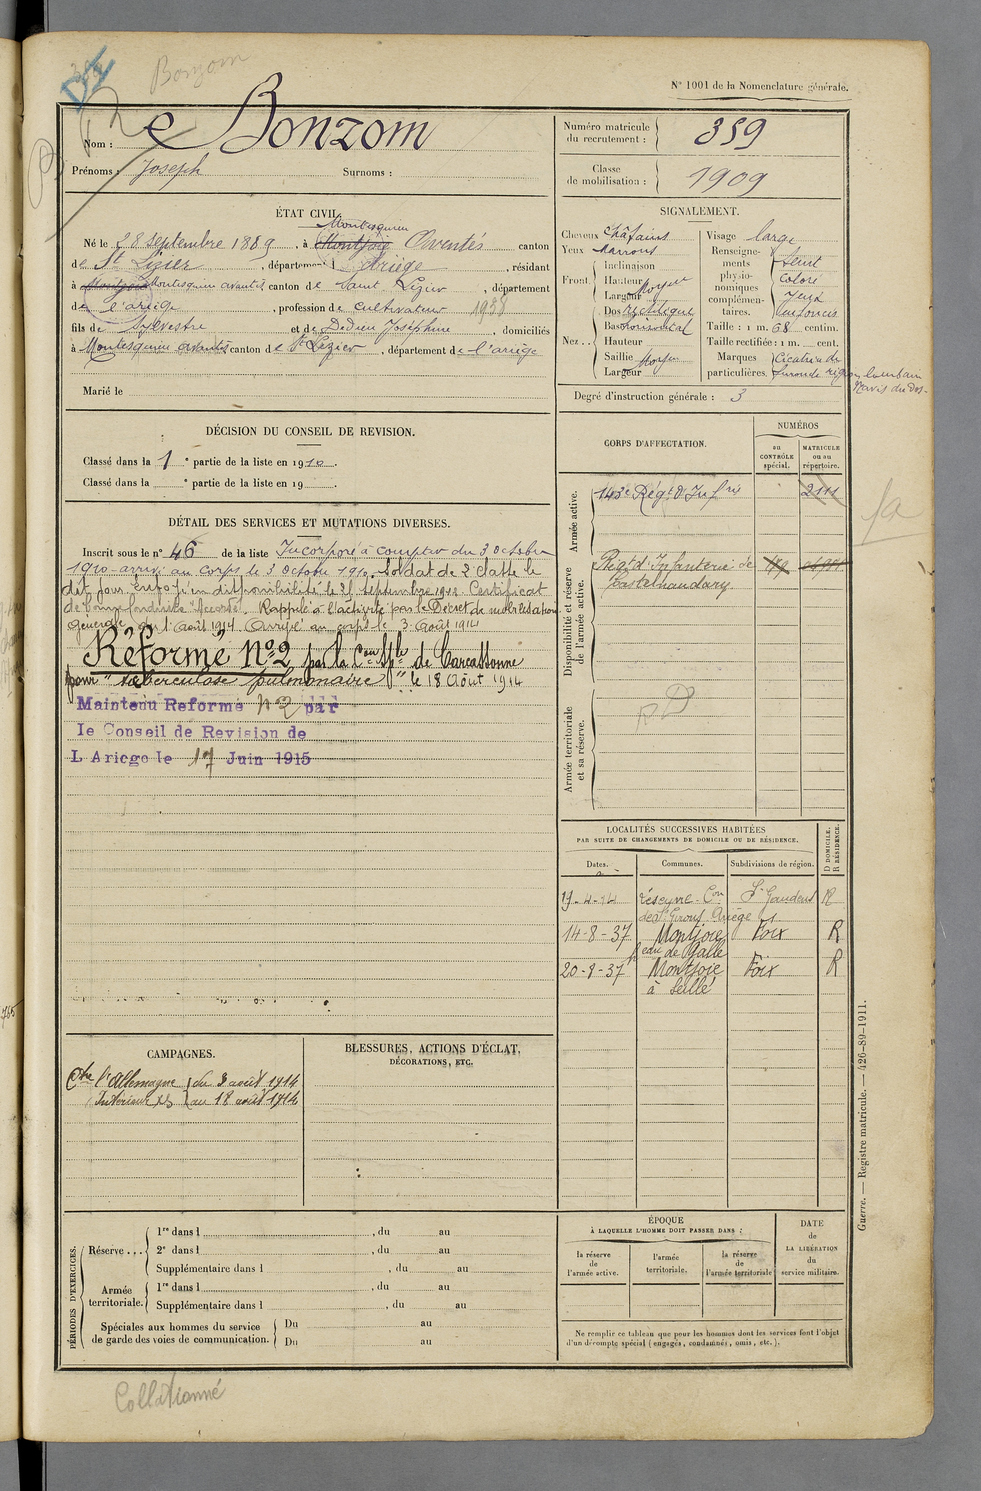 Bonzom
N° 1001 de la Nomenclature générale.
Nom : Bonzom
Prénoms : Joseph Surnoms :
Numéro matricule du recrutement : 359
Classe de mobilisation : 1909
ÉTAT CIVIL.
Montesquieu
Né le 28 septembre 1889, à Montjoie Avantés canton
de St Lizier, département d Ariège, résidant
à Montjoie Montesquieu avantés canton de Saint Lizier, département
de l'ariège, profession de cultivateur 1938
fils de Sylvestre et de Dedieu Joséphine, domiciliés
à Montesquieu avantés canton de St Lizier, département de l'ariège
Marié le
SIGNALEMENT.
Cheveux châtains
Yeux Marrons
Front. Inclinaison
Hauteur Moyen
Largeur
Nez... Dos rectiligne
Base horizontal
Hauteur
Saillie Moyen
Largeur
Visage large
Renseignements physionomiques complémentaires. teint
coloré
yeux
enfoncés
Taille : 1 m. 68 centim.
Taille rectifiée : 1 m. cent.
Marques particulières. Cicatrice de
furoncle région lombaire
Navis du dos.
Degré d'instruction générale : 3
DÉCISION DU CONSEIL DE REVISION.
Classé dans la 1e partie de la liste en 1910.
Classé dans la e partie de la liste en 19 .
DÉTAIL DES SERVICES ET MUTATIONS DIVERSES.
Inscrit sous le n° 46 de la liste Incorporé à compter du 3 Octobre
1910 arrivé au corps le 3 Octobre 1910. Soldat de 2e classe le
dit jour. Envoyé en disponibilité le 25 septembre 1912. Certificat
de bonne conduite "Accordé". Rappelé à l'activité par le Décret de mobilisation
générale du 1er Août 1914. Arrivé au corps le 3 Août 1914
Réformé N°2 par la Con Sple de Carcassonne
pour "tuberculose pulmonaire" le 18 Août 1914
Maintenu Reforme n° 2 par
le Conseil de Revision de
L Ariege le 17 Juin 1915
CORPS D'AFFECTATION.
NUMÉROS
au CONTRÔLE spécial.
MATRICULE ou au répertoire.
Armée active.
143e Régt d'Infrie 2111
Disponibilité et réserve de l'armée active.
Régt d'Infanterie de
Castelnaudary.
Armée territoriale et sa réserve.
LOCALITÉS SUCCESSIVES HABITÉES
PAR SUITE DE CHANGEMENTS DE DOMICILE OU DE RÉSIDENCE.
Dates. Communes. Subdivisions de région. D DOMICILE. R RÉSIDENCE.
St Gaudens R
de St Girons Ariège
14-8-37 Montjoie Foix R
20-8-37 Montjoie Foix R
à Seillé
CAMPAGNES.
Ctre l'Allemagne du 3 août 1914
Intérieur au 18 août 1914
BLESSURES, ACTIONS D'ÉCLAT,
DÉCORATIONS, ETC.
PÉRIODES D'EXERCICES.
Réserve... 1re dans l , du au
2e dans l , du au
Supplémentaire dans l , du au
Armée territoriale. 1re dans l , du au
Supplémentaire dans l , du au
Spéciales aux hommes du service de garde des voies de communication. Du au
Du au
ÉPOQUE
À LAQUELLE L'HOMME DOIT PASSER DANS :
la réserve de l'armée active.
l'armée territoriale.
la réserve de l'armée territoriale
DATE de LA LIBÉRATION du service militaire.
Ne remplir ce tableau que pour les hommes dont les services font l'objet
d'un décompte spécial (engagés, condamnés, omis, etc.).
Guerre. — Registre matricule. — 426-89-1911.
Collationné